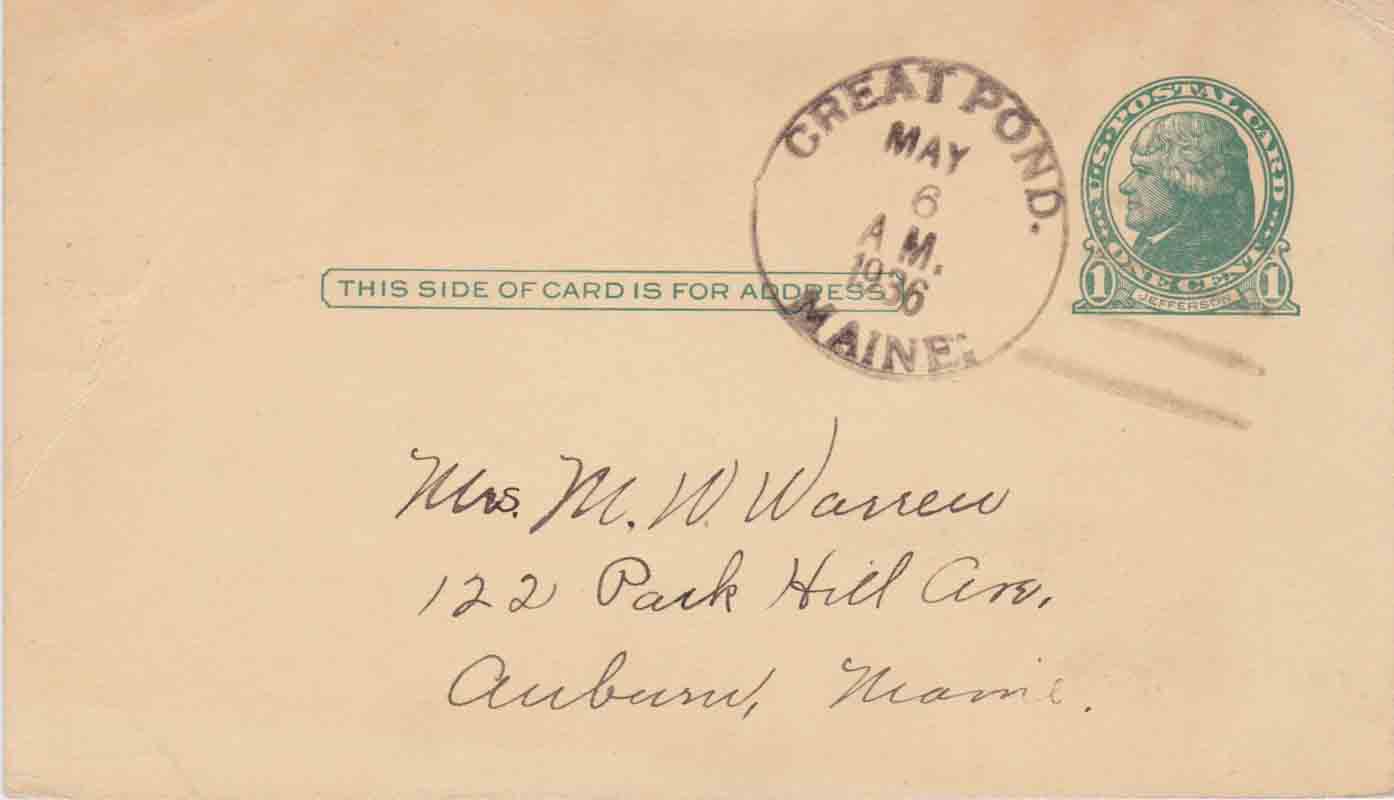 GREAT POND.
MAY
6
A M.
1936
MAINE.
U.S. POSTAL CARD
ONE CENT
1 JEFFERSON 1
THIS SIDE OF CARD IS FOR ADDRESS
Mrs. M. W. Warren
122 Park Hill Ave.
Auburn, Maine.